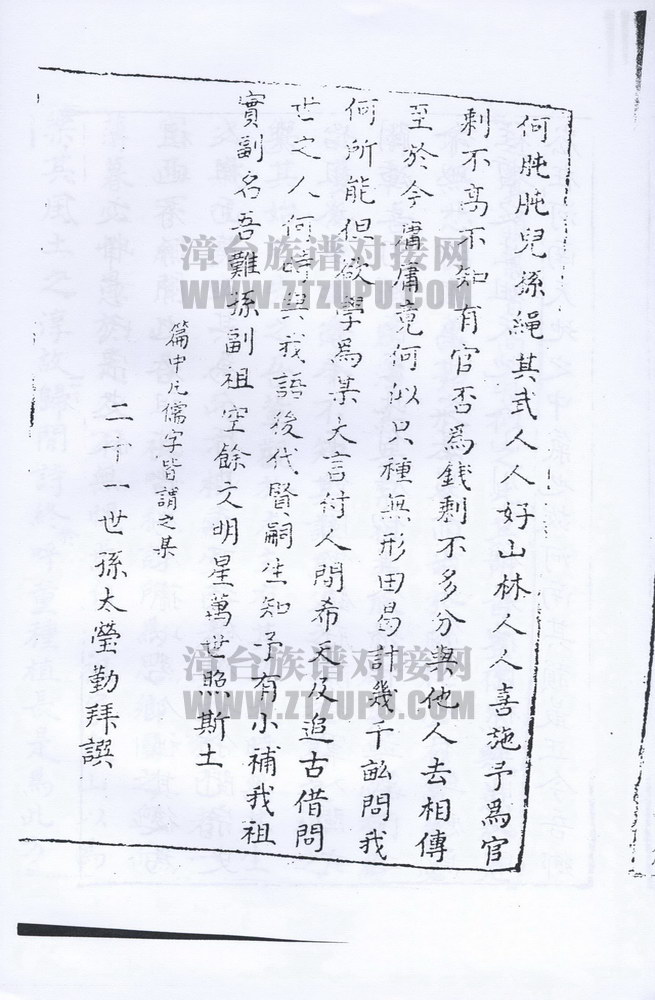 何肫肫兒孫繩其武人人好山林人人喜施予為官
剩不為不知有官否為錢剩不多分與他人去相傳
至於今庸庸竟何似只種無形田曷計幾千畝問我
何所能但欲學為某大言衍人間希天及追古借問
世之人何時與我語後代賢嗣生知予有小補我祖
實副名吾難孫副祖空餘文明星萬世照斯土
篇中凡儒字皆謂之某
二十一世孫太瑩勤拜譔
漳台族谱对接网
WWW.ZTZUPU.COM
漳台族谱对接网
WWW.ZTZUPU.COM